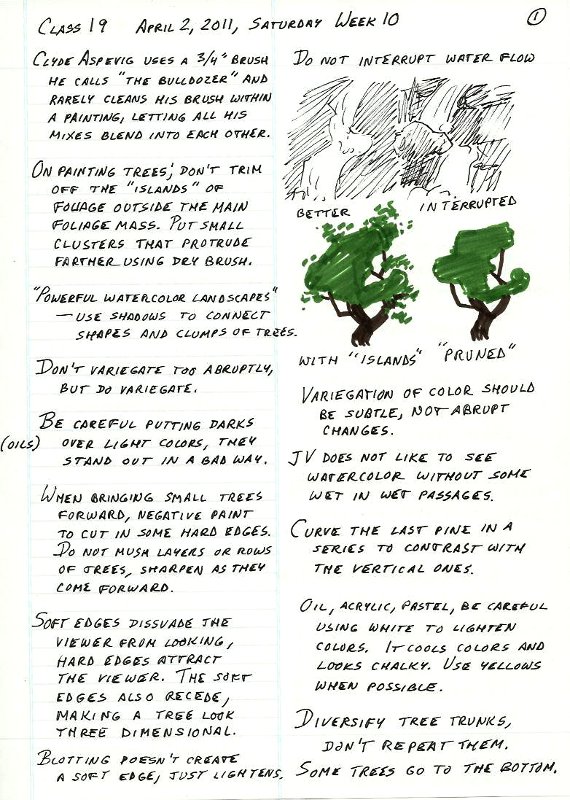 CLASS 19 APRIL 2, 2011, SATURDAY WEEK 10
1
CLYDE ASPEVIG USES A 3/4" BRUSH
HE CALLS "THE BULLDOZER" AND
RARELY CLEANS HIS BRUSH WITHIN
A PAINTING, LETTING ALL HIS
MIXES BLEND INTO EACH OTHER.
ON PAINTING TREES; DON'T TRIM
OFF THE "ISLANDS" OF
FOLIAGE OUTSIDE THE MAIN
FOLIAGE MASS. PUT SMALL
CLUSTERS THAT PROTRUDE
FARTHER USING DRY BRUSH.
"POWERFUL WATERCOLOR LANDSCAPES"
— USE SHADOWS TO CONNECT
SHAPES AND CLUMPS OF TREES.
DON'T VARIEGATE TOO ABRUPTLY,
BUT DO VARIEGATE.
BE CAREFUL PUTTING DARKS
(OILS) OVER LIGHT COLORS, THEY
STAND OUT IN A BAD WAY.
WHEN BRINGING SMALL TREES
FORWARD, NEGATIVE PAINT
TO CUT IN SOME HARD EDGES.
DO NOT MUSH LAYERS OR ROWS
OF TREES, SHARPEN AS THEY
COME FORWARD.
SOFT EDGES DISSUADE THE
VIEWER FROM LOOKING,
HARD EDGES ATTRACT
THE VIEWER. THE SOFT
EDGES ALSO RECEDE,
MAKING A TREE LOOK
THREE DIMENSIONAL.
BLOTTING DOESN'T CREATE
A SOFT EDGE, JUST LIGHTENS.
DO NOT INTERRUPT WATER FLOW
BETTER INTERRUPTED
WITH "ISLANDS" "PRUNED"
VARIEGATION OF COLOR SHOULD
BE SUBTLE, NOT ABRUPT
CHANGES.
JV DOES NOT LIKE TO SEE
WATERCOLOR WITHOUT SOME
WET IN WET PASSAGES.
CURVE THE LAST PINE IN A
SERIES TO CONTRAST WITH
THE VERTICAL ONES.
OIL, ACRYLIC, PASTEL, BE CAREFUL
USING WHITE TO LIGHTEN
COLORS. IT COOLS COLORS AND
LOOKS CHALKY. USE YELLOWS
WHEN POSSIBLE.
DIVERSIFY TREE TRUNKS,
DON'T REPEAT THEM.
SOME TREES GO TO THE BOTTOM.